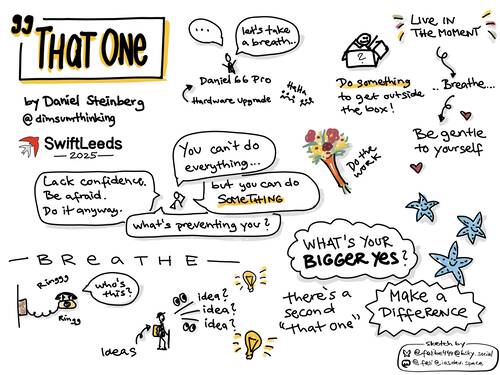 THAT ONE
by Daniel Steinberg
@dimsumthinking
SwiftLeeds
2025
...
let's take
a breath..
Daniel 66 Pro
Hardware upgrade
HaHa
?
Do something
to get outside
the box!
LIVE IN
THE MOMENT
..Breathe...
Be gentle
to yourself
You can't do
everything...
but you can do
SOMETHING
what's preventing you?
Lack confidence.
Be afraid.
Do it anyway.
Do the
work
BREATHE
Ringgg
Ringg
who's
this?
Ideas
idea?
idea?
idea?
WHAT'S YOUR
BIGGER YES?
there's a
second
"that one"
MAKE A
DIFFERENCE
sketch by